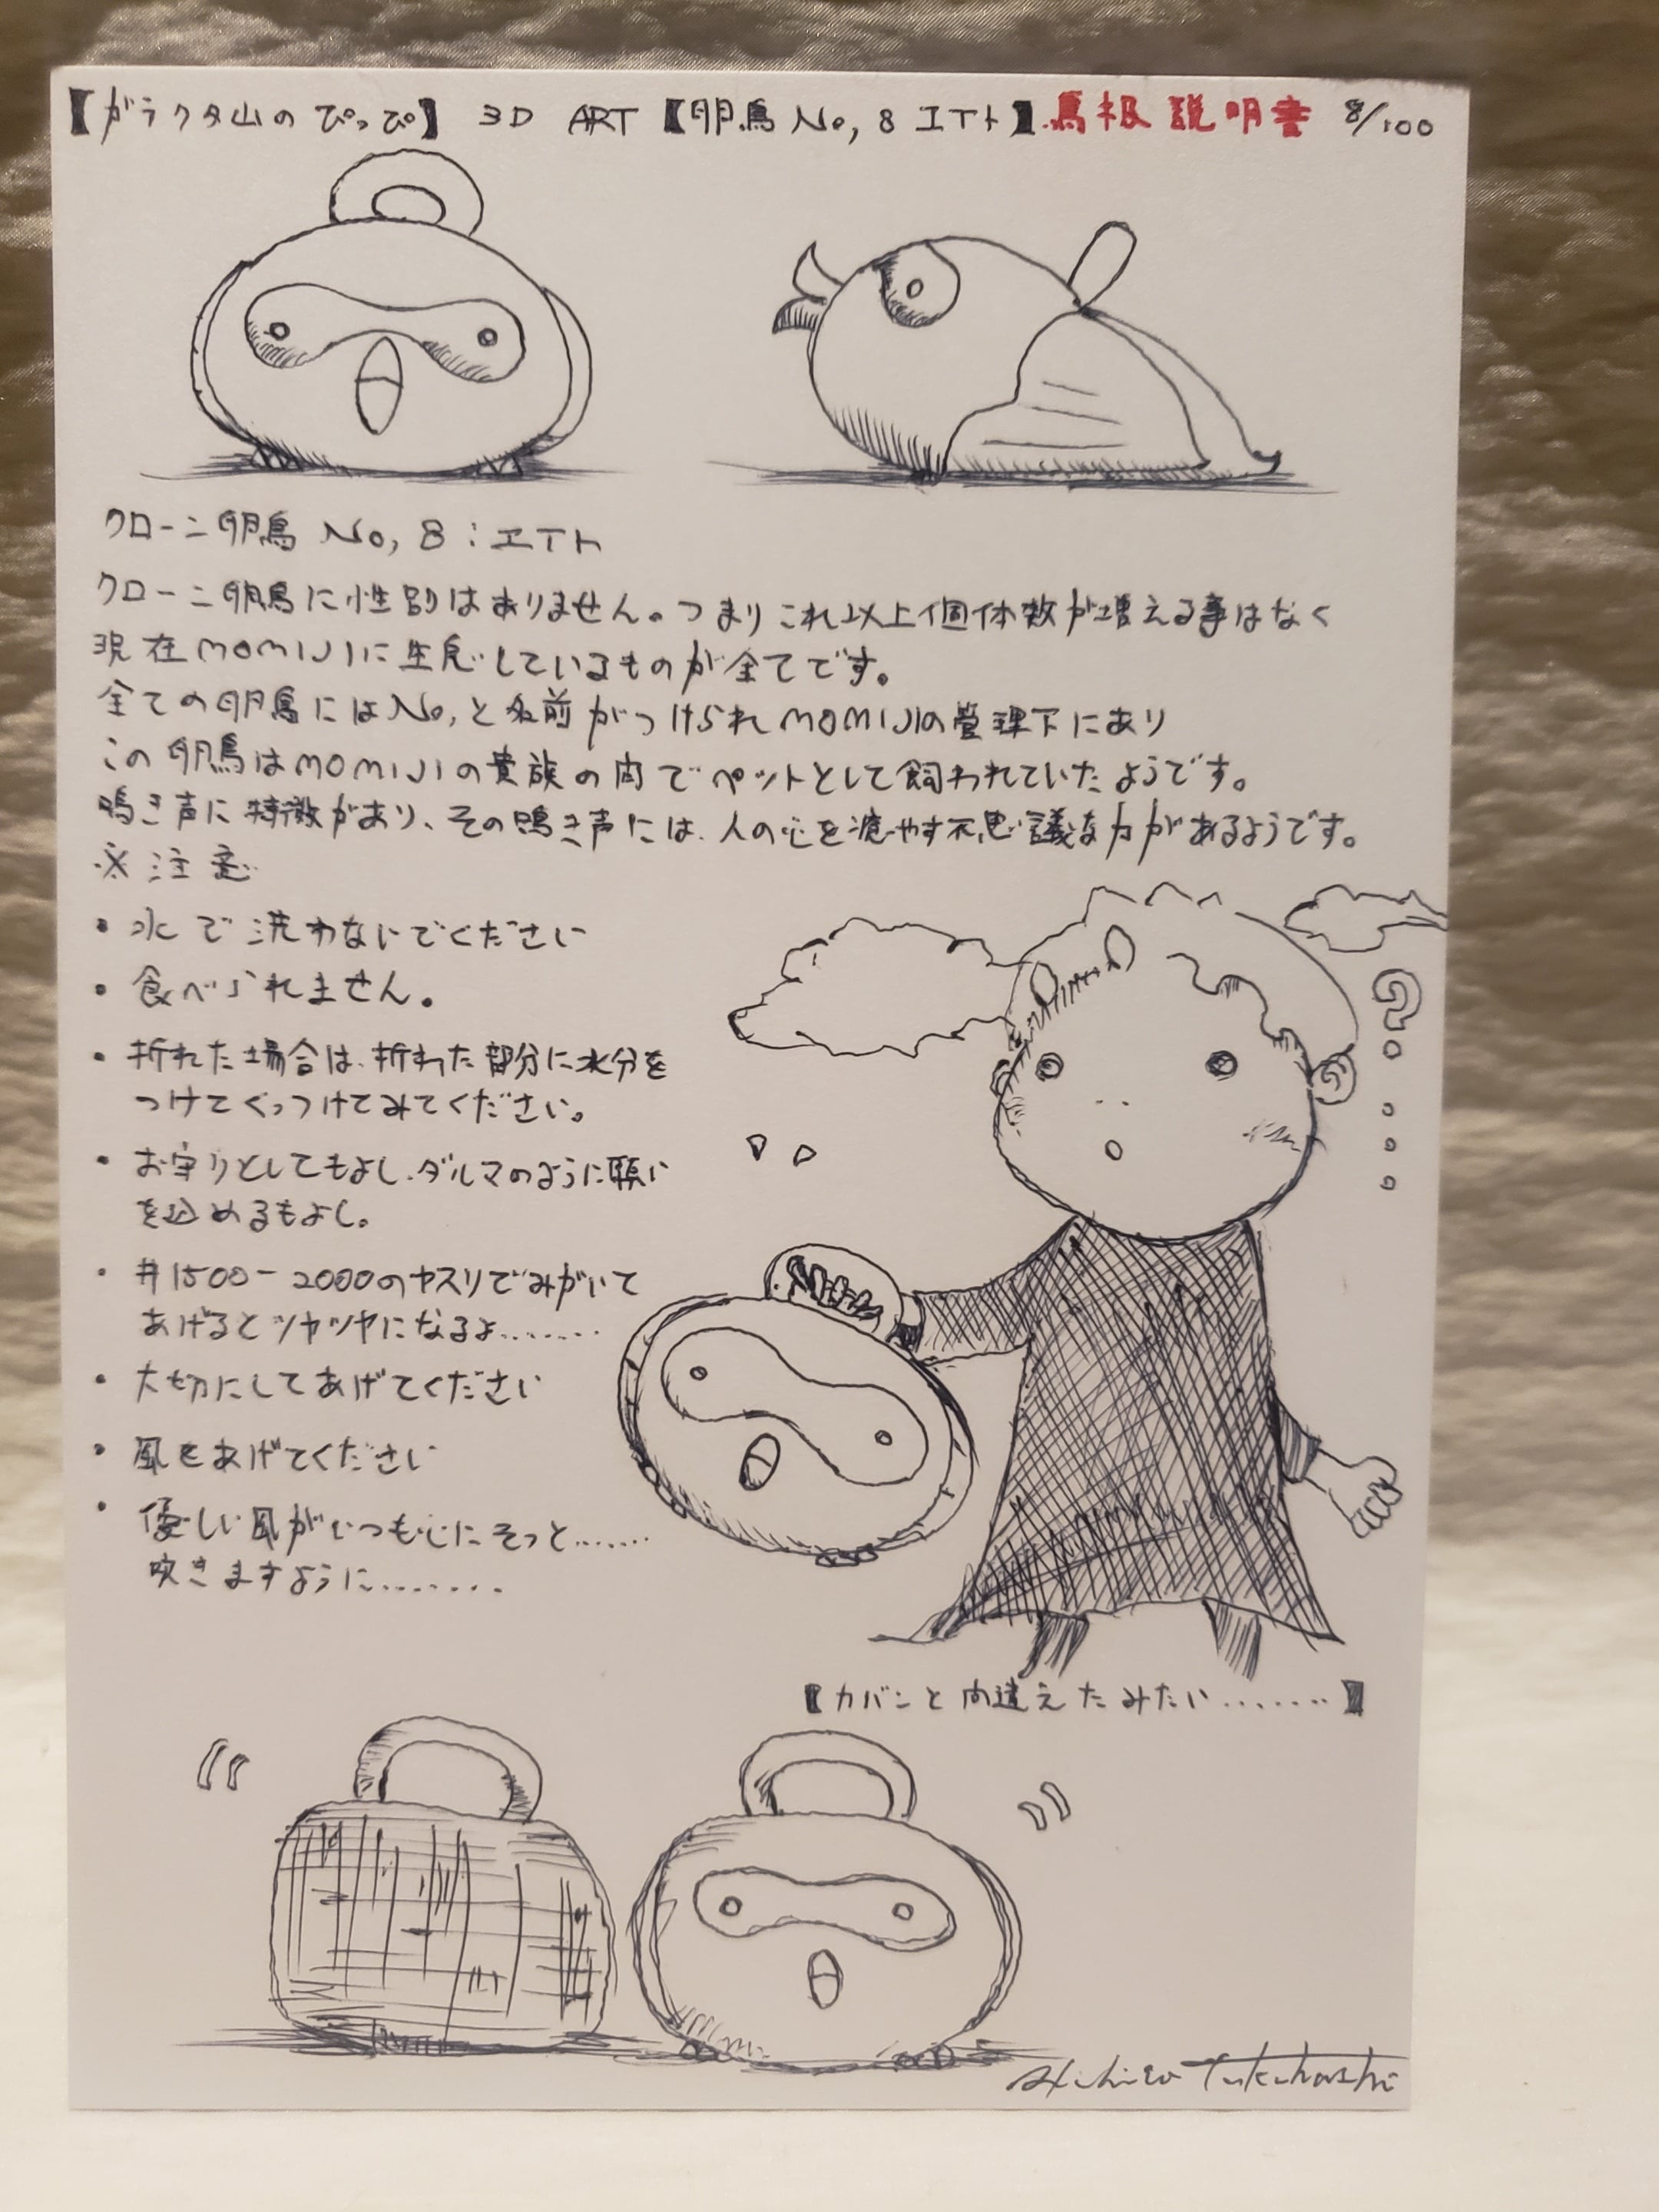 【ガラクタ山のぴっぴ】 3D ART 【卵鳥 No, 8 エイト】 取扱説明書 8/100
クローン卵鳥 No, 8 : エイト
クローン卵鳥に性別はありません。つまりこれ以上個体数が増える事はなく
現在MOMIJIに生息しているものが全てです。
全ての卵鳥にはNo,と名前がつけられMOMIJIの管理下にあり
この卵鳥はMOMIJIの貴族の間でペットとして飼われていたようです。
鳴き声に特徴があり、その鳴き声には、人の心を癒やす不思議な力があるようです。
※注意
・水で洗わないでください
・食べられません。
・折れた場合は、折れた部分に水分を
つけてくっつけてみてください。
・お守りとしてもよし、ダルマのように願い
を込めるもよし。
・#1500-2000のヤスリでみがいて
あげるとツヤツヤになるよ.......
・大切にしてあげてください
・風をあげてください
・優しい風がいつも心にそっと.......
吹きますように........
【カバンと間違えたみたい........】